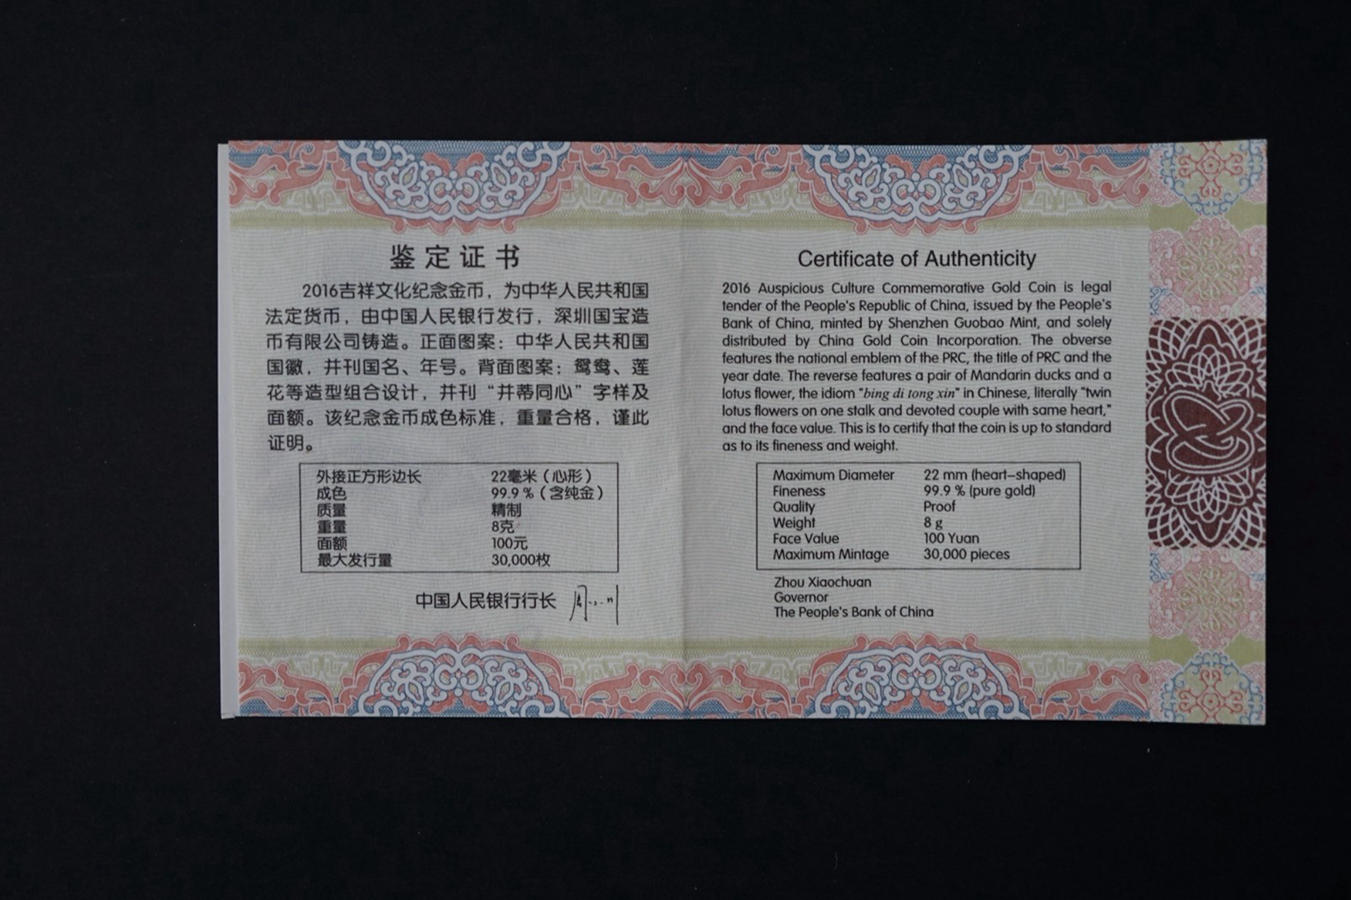 鉴定证书
2016吉祥文化纪念金币，为中华人民共和国
法定货币，由中国人民银行发行，深圳国宝造
币有限公司铸造。正面图案：中华人民共和国
国徽，并刊国名、年号。背面图案：鸳鸯、莲
花等造型组合设计，并刊“并蒂同心”字样及
面额。该纪念金币成色标准，重量合格，谨此
证明。
外接正方形边长 22毫米（心形）
成色 99.9 %（含纯金）
质量 精制
重量 8克
面额 100元
最大发行量 30,000枚
中国人民银行行长
Certificate of Authenticity
2016 Auspicious Culture Commemorative Gold Coin is legal
tender of the People's Republic of China, issued by the People's
Bank of China, minted by Shenzhen Guobao Mint, and solely
distributed by China Gold Coin Incorporation. The obverse
features the national emblem of the PRC, the title of PRC and the
year date. The reverse features a pair of Mandarin ducks and a
lotus flower, the idiom "bing di tong xin" in Chinese, literally "twin
lotus flowers on one stalk and devoted couple with same heart,"
and the face value. This is to certify that the coin is up to standard
as to its fineness and weight.
Maximum Diameter 22 mm (heart-shaped)
Fineness 99.9 % (pure gold)
Quality Proof
Weight 8 g
Face Value 100 Yuan
Maximum Mintage 30,000 pieces
Zhou Xiaochuan
Governor
The People's Bank of China